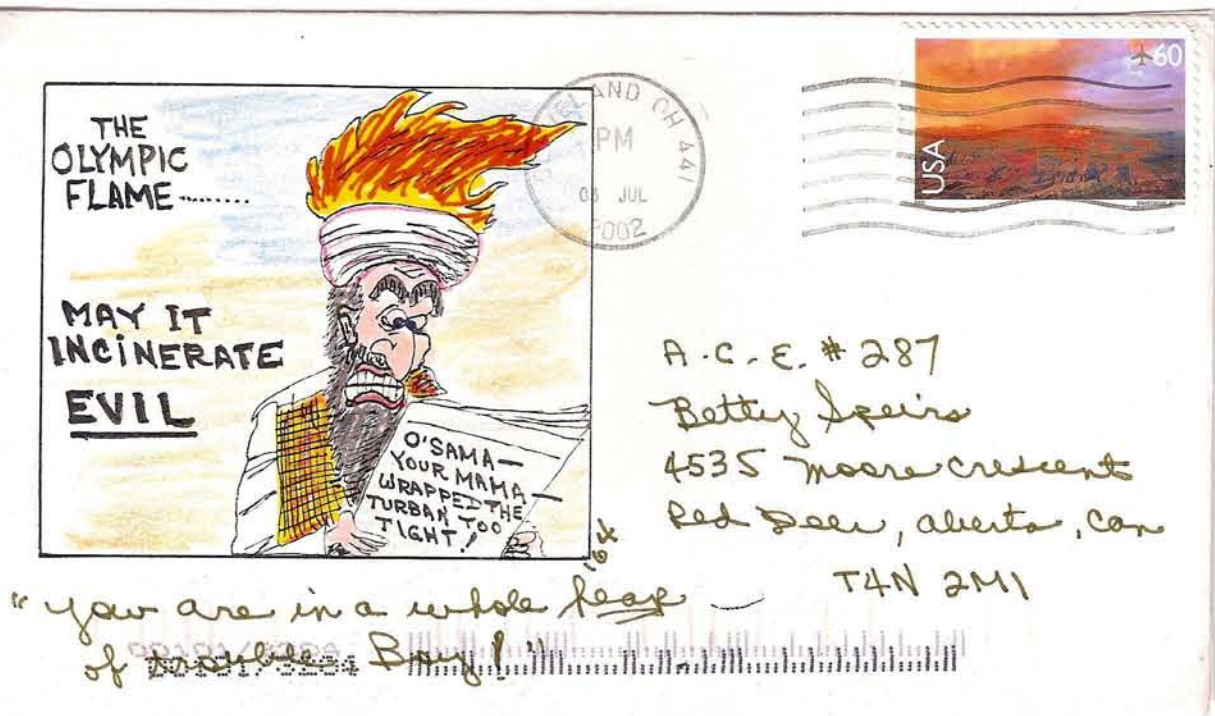 THE
OLYMPIC
FLAME........
MAY IT
INCINERATE
EVIL
O'SAMA—
YOUR MAMA—
WRAPPED THE
TURBAN TOO
TIGHT!
AND OH 441
PM
03 JUL
2002
60
USA
A.C.E. #287
Betty Speirs
4535 Moore Crescent
Red Deer, Alberta, Can
T4N 2M1
"You are in a whole heap
of trouble Boy!"